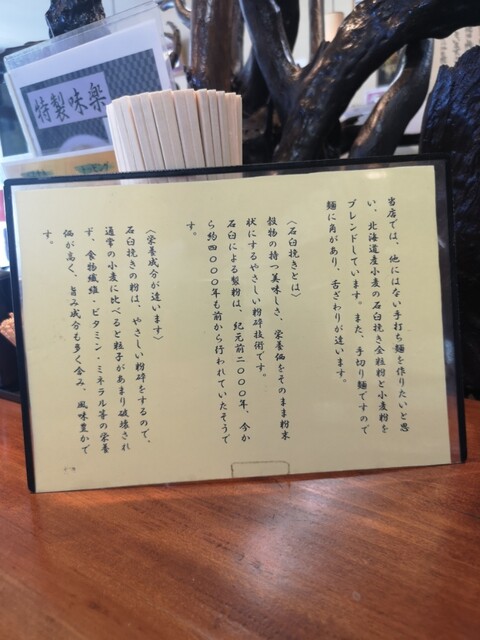 当店では、他にはない手打ち麺を作りたいと思
い、北海道産小麦の石臼挽き全粒粉と小麦粉を
ブレンドしています。また、手切り麺ですので
麺に角があり、舌ざわりが違います。
〈石臼挽きとは〉
穀物の持つ美味しさ、栄養価をそのまま粉末
状にするやさしい粉砕技術です。
石臼による製粉は、紀元前二〇〇〇年、今か
ら約四〇〇〇年も前から行われていたそうで
す。
〈栄養成分が違います〉
石臼挽きの粉は、やさしい粉砕をするので、
通常の小麦に比べると粒子があまり破壊され
ず、食物繊維・ビタミン・ミネラル等の栄養
価が高く、旨み成分も多く含み、風味豊かで
す。
特製味楽